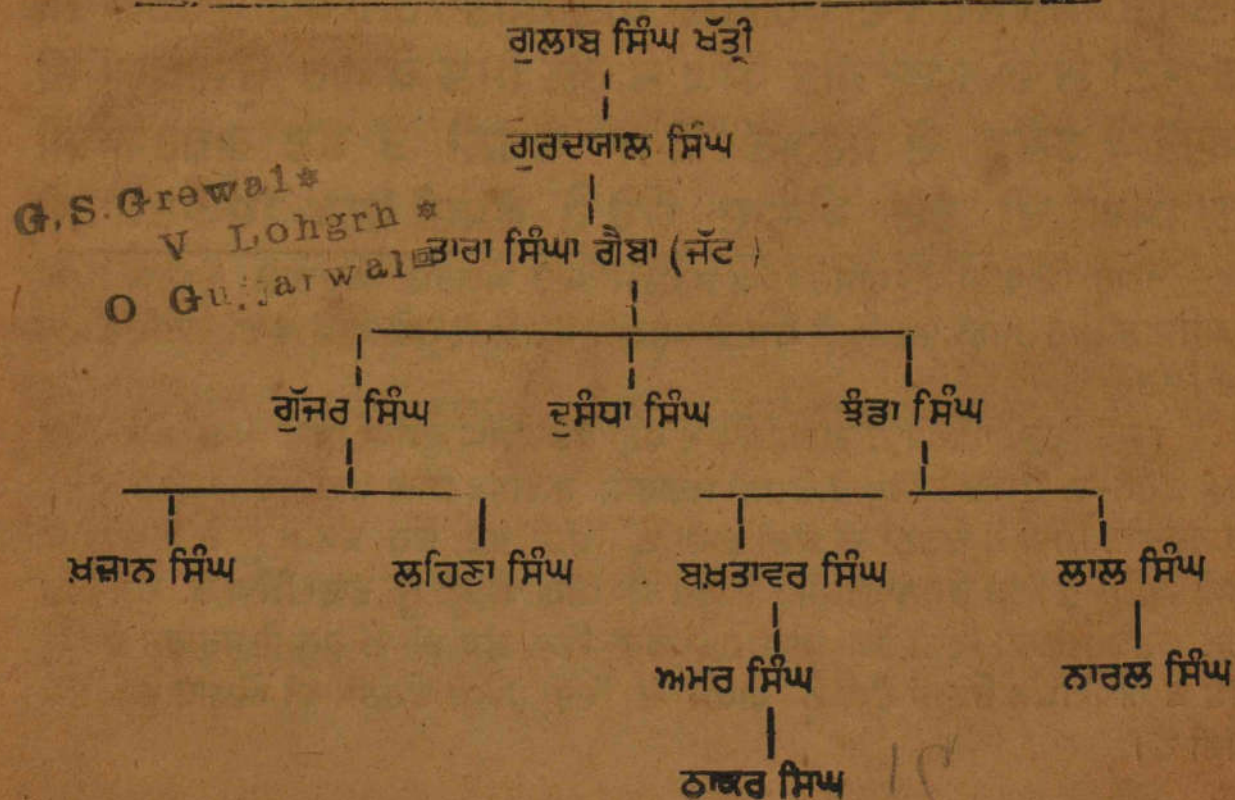 ਗੁਲਾਬ ਸਿੰਘ ਖੱਤ੍ਰੀ
ਗੁਰਦਯਾਲ ਸਿੰਘ
G.S.Grewal*
V Lohgrh *
O Gujjarwal
ਤਾਰਾ ਸਿੰਘਾ ਗੈਬਾ (ਜੱਟ )
ਗੁੱਜਰ ਸਿੰਘ ਦੁਸੰਧਾ ਸਿੰਘ ਝੰਡਾ ਸਿੰਘ
ਖ਼ਜ਼ਾਨ ਸਿੰਘ ਲਹਿਣਾ ਸਿੰਘ ਬਖ਼ਤਾਵਰ ਸਿੰਘ ਲਾਲ ਸਿੰਘ
ਅਮਰ ਸਿੰਘ ਨਾਰਲ ਸਿੰਘ
ਠਾਕਰ ਸਿਘ